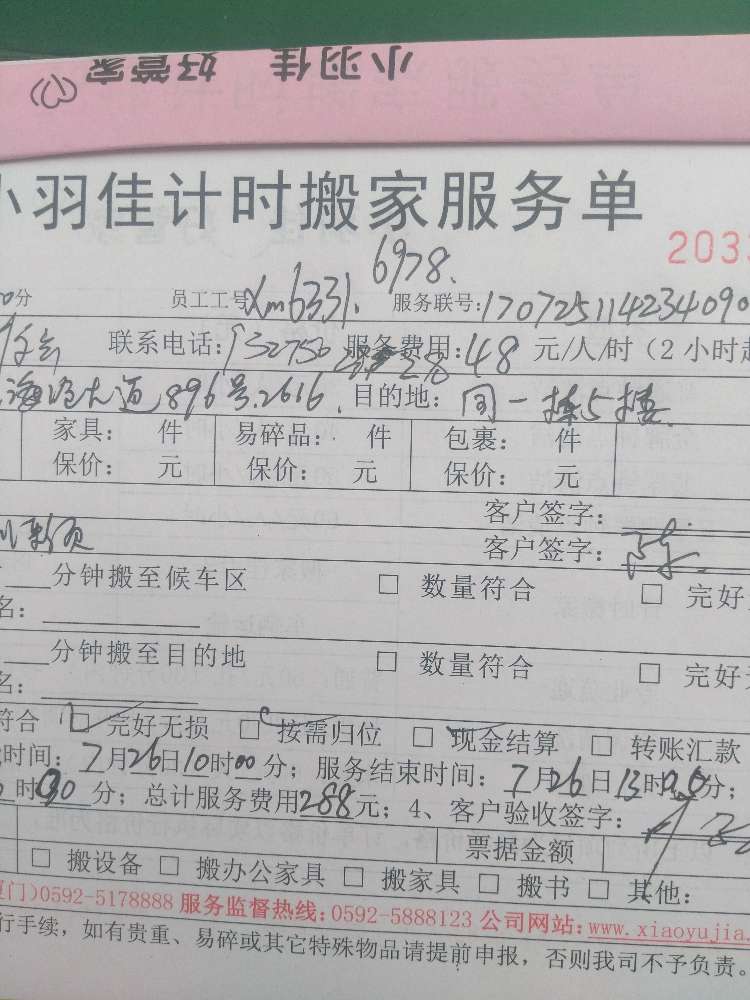 小羽佳 好管家
小羽佳计时搬家服务单
2033
6978.
0分 员工工号 Xm6331. 服务联号:170725114234090
联系电话: 服务费用:48 元/人/时（2 小时起
海沧大道896号.2616. 目的地: 同一栋5楼
家具: 件 易碎品: 件 包裹: 件
保价: 元 保价: 元 保价: 元
客户签字:
客户签字:
分钟搬至候车区 □ 数量符合 □ 完好无
名:
分钟搬至目的地 □ 数量符合 □ 完好无
名:
符合 □ 完好无损 □ 按需归位 □ 现金结算 □ 转账汇款
时间: 7月26日10时00分; 服务结束时间: 7月26日13时05分;
时00分; 总计服务费用288元; 4、客户验收签字:
票据金额
□ 搬设备 □ 搬办公家具 □ 搬家具 □ 搬书 □ 其他:
门)0592-5178888 服务监督热线:0592-5888123 公司网站:www.xiaoyujia.
行手续，如有贵重、易碎或其它特殊物品请提前申报，否则我司不予负责。